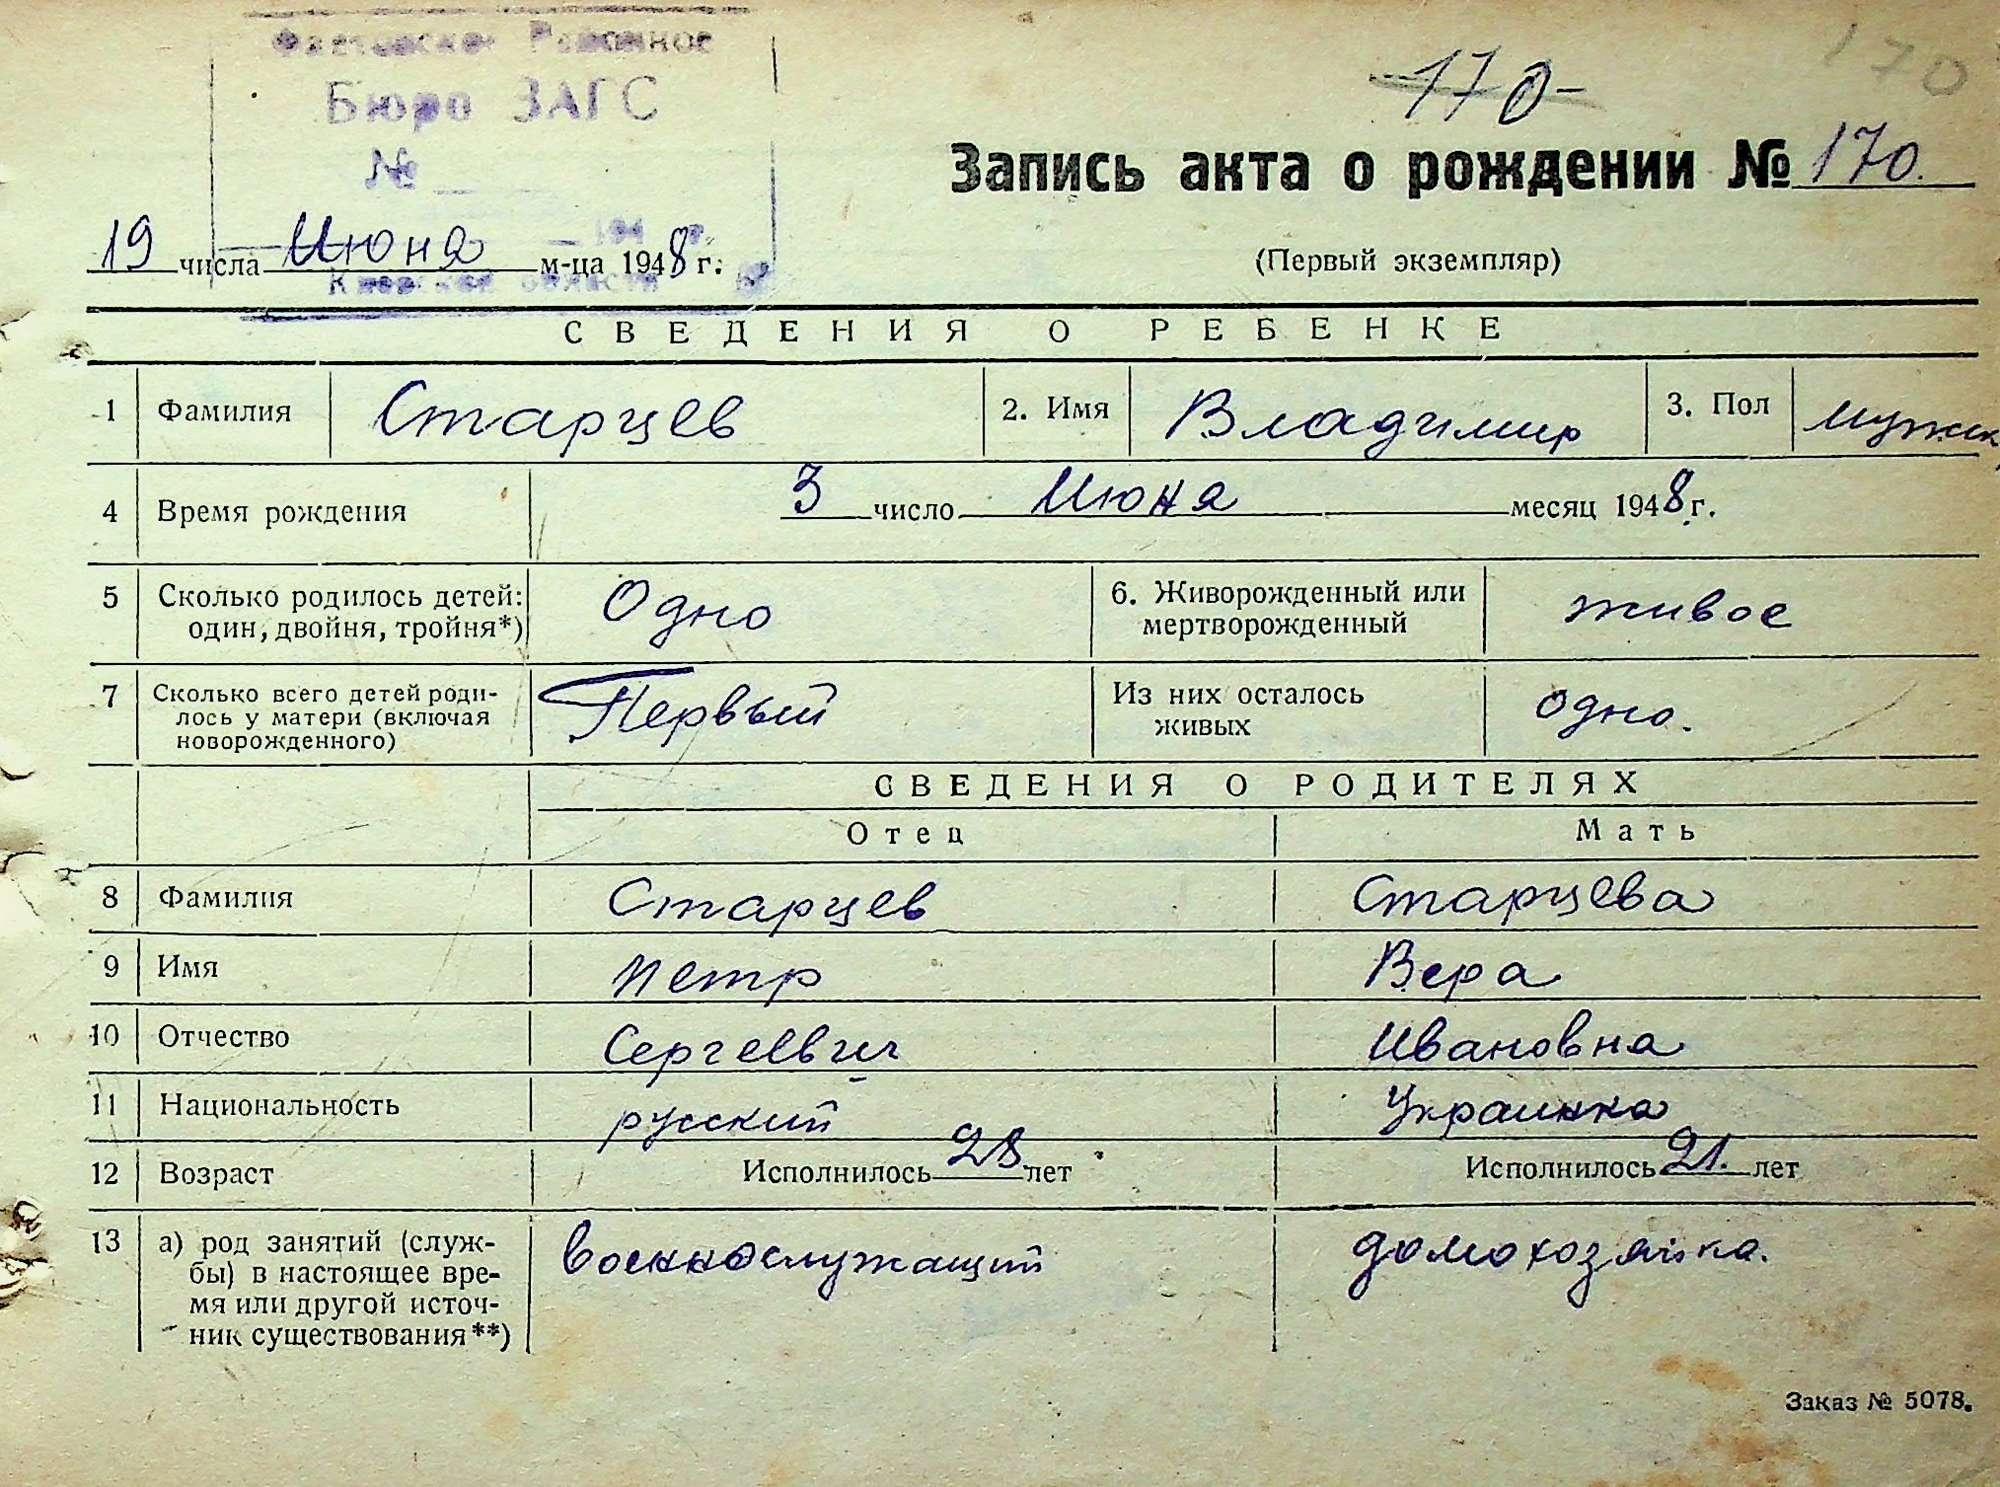 170
Фастовское Районное
Бюро ЗАГС
№
170
Запись акта о рождении № 170.
194 г.
19 числа Июня м-ца 1948 г.
(Первый экземпляр)
Киевской области
СВЕДЕНИЯ О РЕБЕНКЕ
1 Фамилия Старцев 2. Имя Владимир 3. Пол мужск
4 Время рождения 3 число Июня месяц 1948 г.
5 Сколько родилось детей: Одно 6. Живорожденный или живое
один, двойня, тройня*) мертворожденный
7 Сколько всего детей роди- Первый Из них осталось одно.
лось у матери (включая живых
новорожденного)
СВЕДЕНИЯ О РОДИТЕЛЯХ
Отец Мать
8 Фамилия Старцев Старцева
9 Имя Петр Вера
10 Отчество Сергеевич Ивановна
11 Национальность русский Украинка
12 Возраст Исполнилось 28 лет Исполнилось 21. лет
13 а) род занятий (служ- военнослужащий домохозяйка.
бы) в настоящее вре-
мя или другой источ-
ник существования**)
Заказ № 5078.